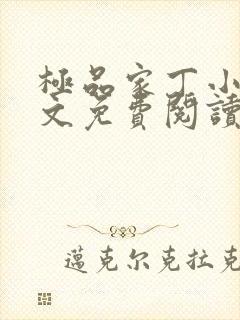 極品家丁小
文免費閱讀
邁克尔克拉克